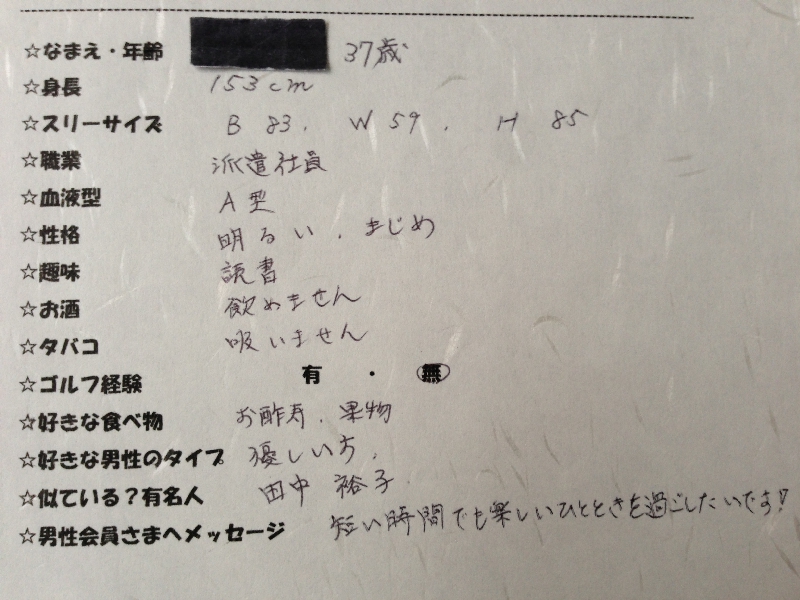 ☆なまえ・年齢 37歳
☆身長 153cm
☆スリーサイズ B 83. W 59. H 85
☆職業 派遣社員
☆血液型 A型
☆性格 明るい、まじめ
☆趣味 読書
☆お酒 飲めません
☆タバコ 吸いません
☆ゴルフ経験 有 ・ 無
☆好きな食べ物 お酢寿、果物
☆好きな男性のタイプ 優しい方、
☆似ている?有名人 田中 裕子
☆男性会員さまへメッセージ 短い時間でも楽しいひとときを過ごしたいです!